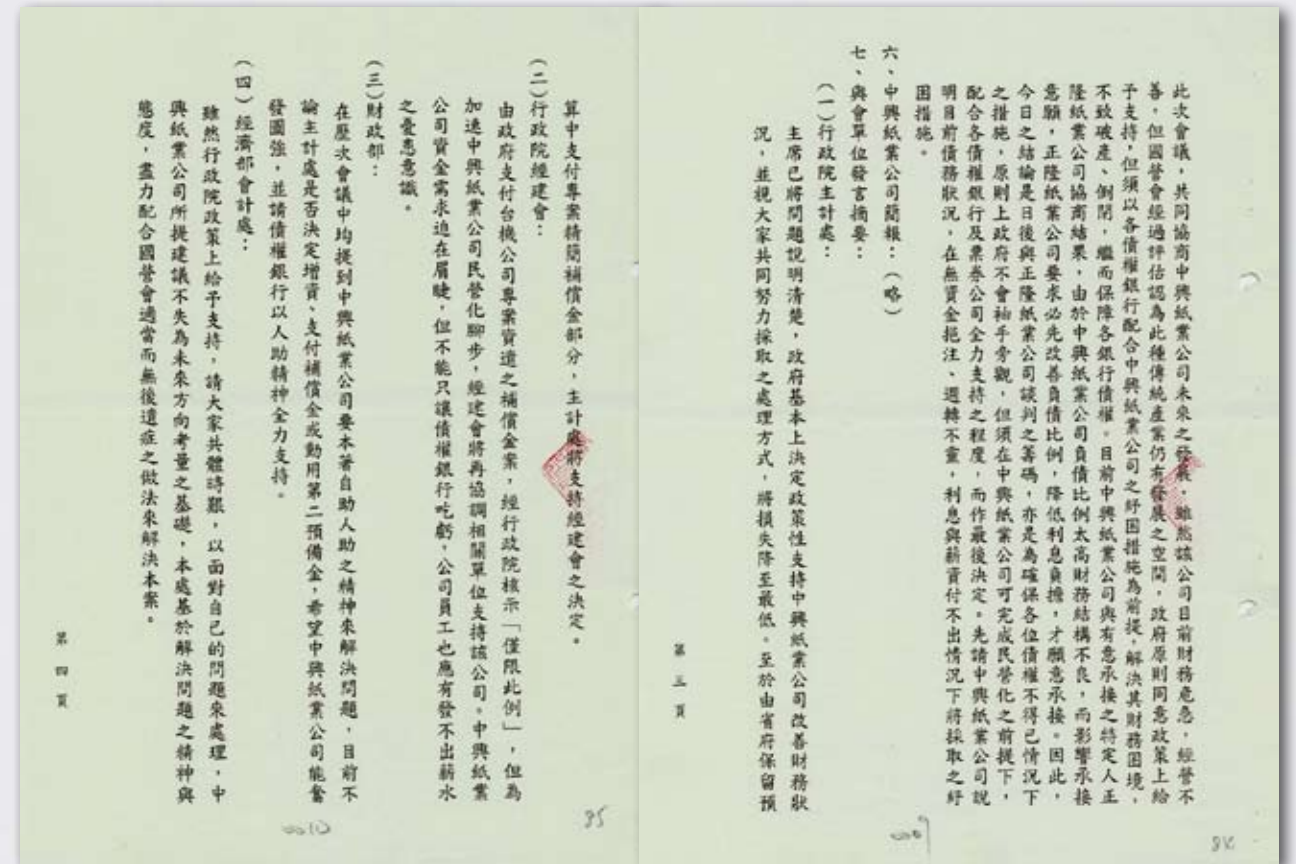 此次會議，共同協商中興紙業公司未來之發展。雖然該公司目前財務危急，經營不
善，但國營會經過評估認為此種傳統產業仍有發展之空間，政府原則同意政策上給
予支持，但須以各債權銀行配合中興紙業公司之紓困措施為前提，解決其財務困境，
不致破產、倒閉，繼而保障各銀行債權。目前中興紙業公司與有意承接之特定人正
隆紙業公司協商結果，由於中興紙業公司負債比例太高財務結構不良，而影響承接
意願，正隆紙業公司要求必先改善負債比例，降低利息負擔，才願意承接。因此，
今日之結論是日後與正隆紙業公司談判之籌碼，亦是為確保各位債權不得已情況下
之措施，原則上政府不會袖手旁觀，但須在中興紙業公司可完成民營化之前提下，
配合各債權銀行及票券公司全力支持之程度，而作最後決定。先請中興紙業公司說
明目前債務狀況，在無資金挹注、週轉不靈，利息與薪資付不出情況下將採取之紓
困措施。
六、中興紙業公司簡報：（略）
七、與會單位發言摘要：
（一）行政院主計處：
主席已將問題說明清楚，政府基本上決定政策性支持中興紙業公司改善財務狀
況，並視大家共同努力採取之處理方式，將損失降至最低。至於由省府保留預
第三頁
0009
84
算中支付專案精簡補償金部分，主計處將支持經建會之決定。
（二）行政院經建會：
由政府支付台機公司專案資遣之補償金案，經行政院核示「僅限此例」，但為
加速中興紙業公司民營化腳步，經建會將再協調相關單位支持該公司。中興紙業
公司資金需求迫在眉睫，但不能只讓債權銀行吃虧，公司員工也應有發不出薪水
之憂患意識。
（三）財政部：
在歷次會議中均提到中興紙業公司要本著自助人助之精神來解決問題，目前不
論主計處是否決定增資、支付補償金或動用第二預備金，希望中興紙業公司能奮
發圖強，並請債權銀行以人助精神全力支持。
（四）經濟部會計處：
雖然行政院政策上給予支持，請大家共體時艱，以面對自己的問題來處理，中
興紙業公司所提建議不失為未來方向考量之基礎，本處基於解決問題之精神與
態度，盡力配合國營會適當而無後遺症之做法來解決本案。
第四頁
0010
85